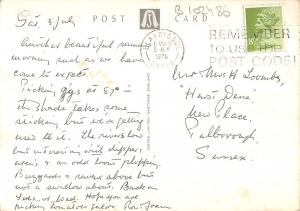 B 102486
Sat 3 July
POST CARD
Another beautiful summer
morning such as we have
come to expect.
Picking gigs at 87° in
the shade takes some
sticking, but we're getting
used to it. The rivers low
but interesting with dippers,
and an odd trout plopping.
Buzzards & ravens above but
not a swallow about. Back on
Tues. or Wed. Hope you are
picking tomatoes galore.
1976
REMEMBER
to use the
POST CODE!
Mr & Mrs H. Loomks,
"Hurst Dene"
New Place,
Pulborough,
Sussex.